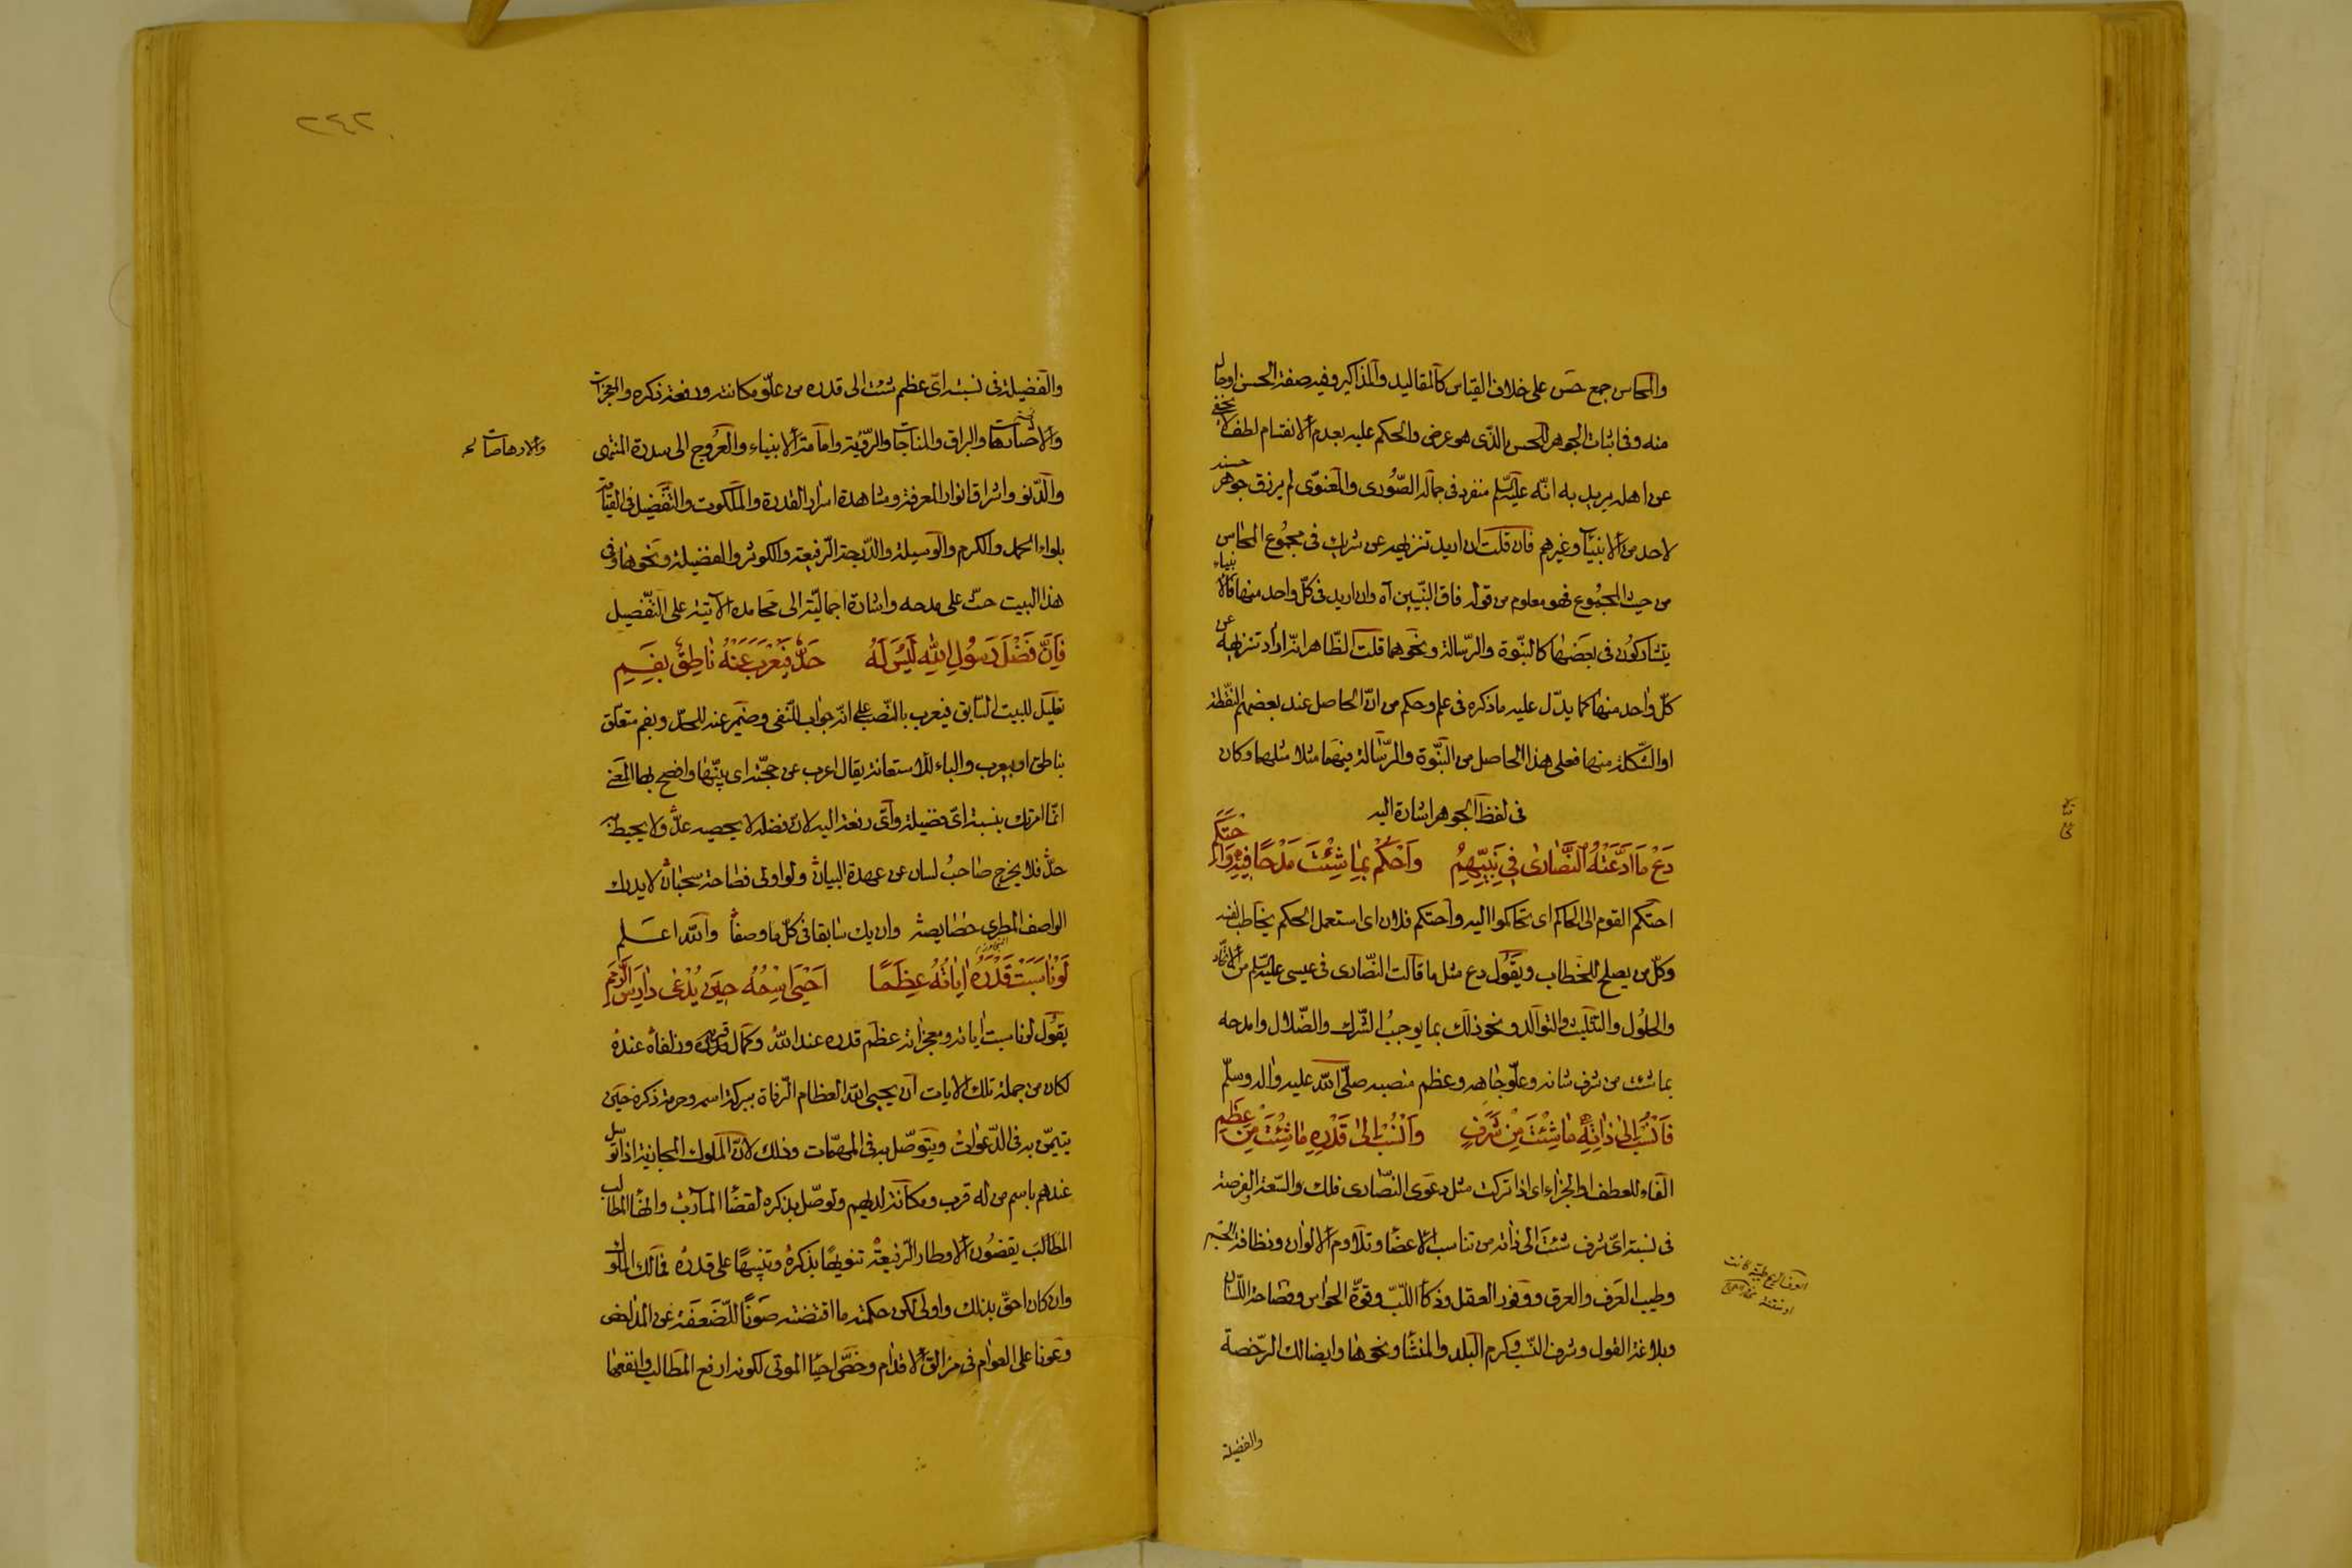 والمحاسن جمع حسن على خلاف القياس كالمقاليد والمذاكير وفيه صفة الحسن او حال
منه وفى اثبات الجوهر للحسن الذى هو عرض والحكم عليه بعدم الانقسام لطف لا يخفى
عن اهله يريد به انه عليه السلم منفرد فى جماله الصورى والمعنوى لم يرزق جوهر حسنه
لاحد من الانبياء وغيرهم فان قلت ان اريد تنزيهه عن شريك فى مجموع المحاسن
من حيث المجموع فهو معلوم من قوله فاق النبيين آه وان اريد فى كل واحد منها فالانبياء
يتشاركون فى بعضها كالنبوة والرسالة ونحوهما قلت الظاهر انه اراد تنزيهه عن
كل واحد منها كما يدل عليه ما ذكره فى علم وحكم من ان الحاصل عند بعضهم النقطة
او الشكلة منها فعلى هذا الحاصل من النبوة والرسالة فيهما مثلا مثلهما وكان
فى لفظ الجوهر اشارة اليه
دَعْ مَا ادَّعَتْهُ النَّصَارٰى فِى نَبِيِّهِمُ وَاحْكُمْ بِمَا شِئْتَ مَدْحًا فِيهِ وَاحْتَكِمِ
احتكم القوم الى الحاكم اى تحاكموا اليه واحتكم فلان اى استعمل الحكم يخاطب نفسه
وكل من يصلح للخطاب ويقول دع مثل ما قالت النصارى فى عيسى عليه السلم من الاتحاد
والحلول والتثليث والتوالد ونحو ذلك بما يوجب الشرك والضلال وامدحه
بما شئت من شرف شانه وعلو جاهه وعظم منصبه صلى الله عليه واله وسلم
فَانْسُبْ اِلٰى ذَاتِهِ مَا شِئْتَ مِنْ شَرَفٍ وَانْسُبْ اِلٰى قَدْرِهِ مَا شِئْتَ مِنْ عِظَمِ
الفاء للعطف او الجزاء اى اذا تركت مثل دعوى النصارى فلك والسعة الفرصة
فى نسبة اى شرف شئت الى ذاته من تناسب الاعضا وتلاوم الالوان ونظافة الجسم
وطيب العرف والعرق ووفور العقل وذكا اللب وقوة الحواس وفصاحة اللسان
وبلاغة القول وشرف النسب وكرم البلد والمنشأ ونحوها وايضا لك الرخصة
والفضيلة
٢٤٢
والفضيلة فى نسبة اى عظم شئت الى قدره من علو مكانته ورفعة ذكره والمعجزات
والبراق والمناجات والرؤية وامامة الانبياء والعروج الى سدرة المنتهى
والارهاصات
والدنو واشراق انوار المعرفة ومشاهدة اسرار القدرة والملكوت والتفضيل فى القيامة
بلواء الحمد والكرم والوسيلة والدرجة الرفيعة والكوثر والفضيلة ونحوها وفى
هذا البيت حث على مدحه واشارة اجمالية الى محامده الآتية على التفصيل
فَاِنَّ فَضْلَ رَسُولِ اللهِ لَيْسَ لَهُ حَدٌّ فَيُعْرِبَ عَنْهُ نَاطِقٌ بِفَمِ
تعليل للبيت السابق فيعرب بالنصب على انه جواب للنفى وضمير عنه للحد وبفم متعلق
بناطق او بيعرب والباء للاستعانة يقال اعرب عن حجته اى بينها واضح بها المعنى
انما امرتك بنسبة اى فضيلة واى رفعة اليه لان فضله لا يحصيه عد ولا يحيط به
حد فلا يخرج صاحب لسان عن عهدة البيان ولو اوتى فصاحة سحبان لا يدرك
الواصف المطرى خصايصه وان يك سابقا فى كل ما وصفا والله اعلم
لَوْ نَاسَبَتْ قَدْرَهُ اٰيَاتُهُ عِظَمًا اَحْيَى اسْمُهُ حِينَ يُدْعٰى دَارِسَ الرِّمَمِ
يقول لو ناسبت اياته ومعجزاته عظم قدره عند الله وكمال قربه وزلفاه عنده
لكان من جملة تلك الايات ان يحيى الله العظام الرفاة ببركة اسمه وحرمة ذكره حين
يتيمن به فى الدعوات ويتوصل به فى المهمات وذلك لان الملوك المجازية اذا توسل
عندهم باسم من له قرب ومكانة لديهم وتوصل بذكره لقضا المآرب والمطالب
المطالب يقضون الاوطار الرفيعة تنويها بذكره وتنبيها على قدره فمالك الملوك
وان كان احق بذلك واولى لكن حكمته ما اقتضته صونا للضعفة عن المداحض
وعونا على العوام فى مزالق الاقدام وخص احيا الموتى لكونه ارفع المطالب وانفعها